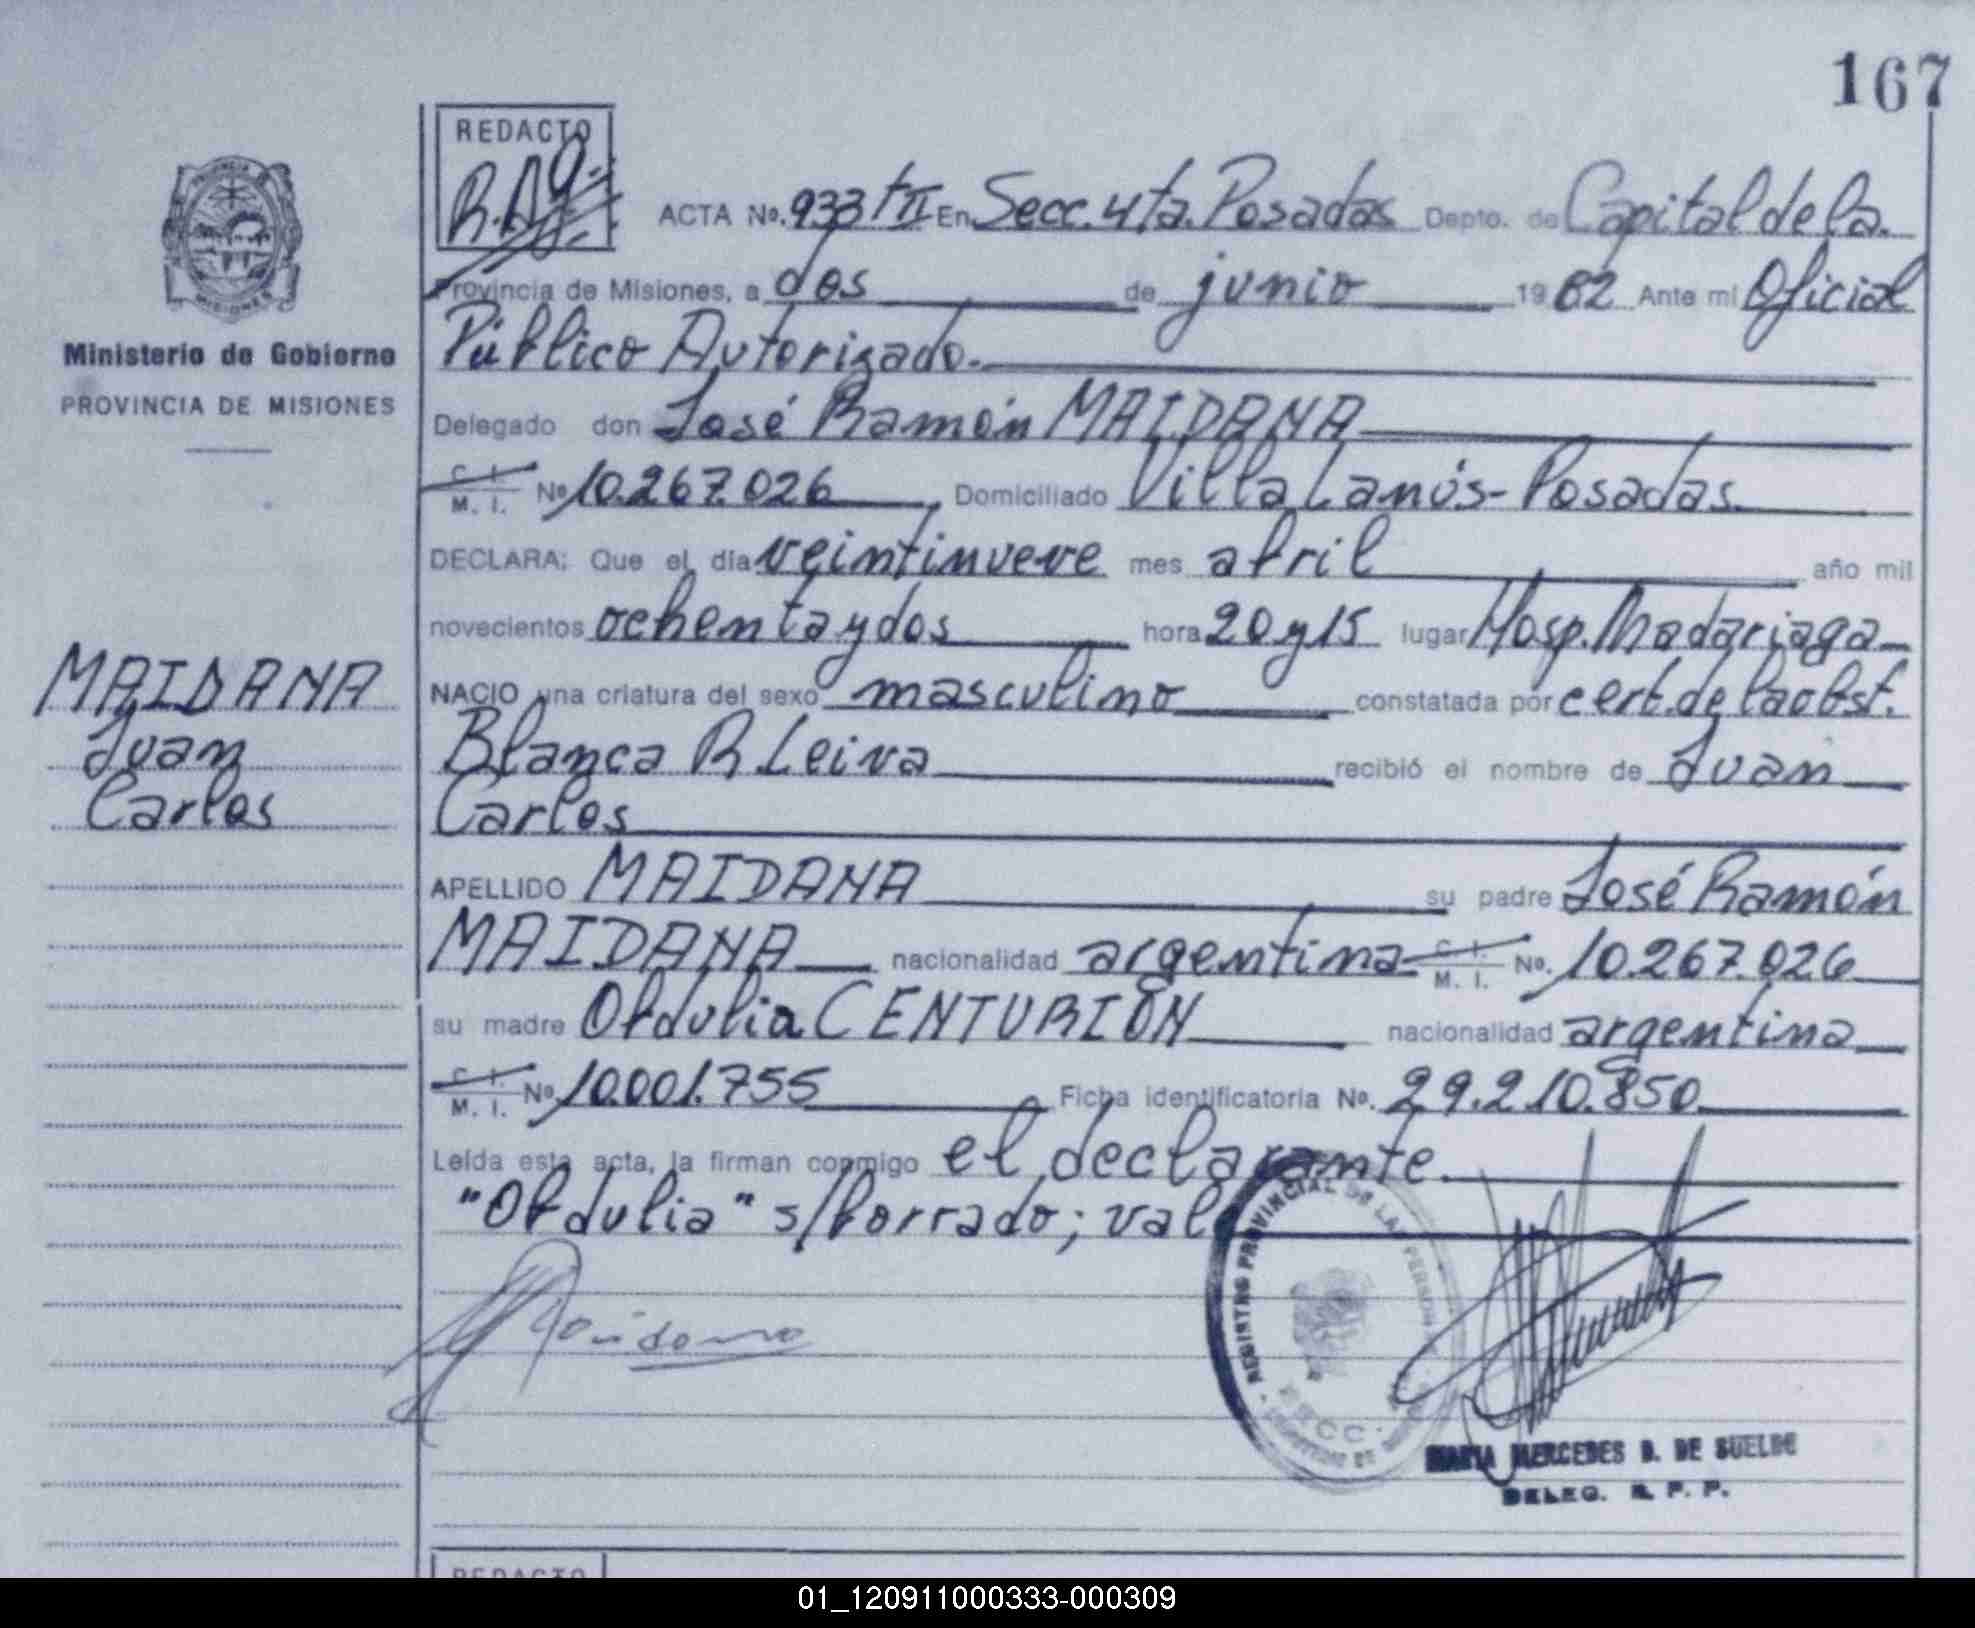 167
REDACTO
R.A.g.
ACTA No. 933 t II En Secc. 4ta. Posadas Depto. de Capital de la.
Provincia de Misiones, a dos de junio 1982 Ante mi Oficial
Público Autorizado.
Ministerio de Gobierno
PROVINCIA DE MISIONES
Delegado don José Ramón MAIDANA
C. I. / M. I. No 10.267.026, Domiciliado Villa Lanús - Posadas.
DECLARA: Que el día veintinueve mes abril año mil
novecientos ochenta y dos hora 20 y 15 lugar Hosp. Madariaga
NACIO una criatura del sexo masculino constatada por cert. de la obst.
Blanca R Leiva recibió el nombre de Juan
Carlos
MAIDANA
Juan
Carlos
APELLIDO MAIDANA su padre José Ramón
MAIDANA nacionalidad argentina C. I. / M. I. No. 10.267.026
su madre Obdulia CENTURIÓN nacionalidad argentina
C. I. / M. I. No 10.001.755 Ficha identificatoria No. 29.210.850
Leída esta acta, la firman conmigo el declarante.
"Obdulia" s/borrado; vale
REGISTRO PROVINCIAL DE LAS PERSONAS
MARIA MERCEDES D. DE SUELDO
DELEG. R. P. P.
REDACTO
01_120911000333-000309